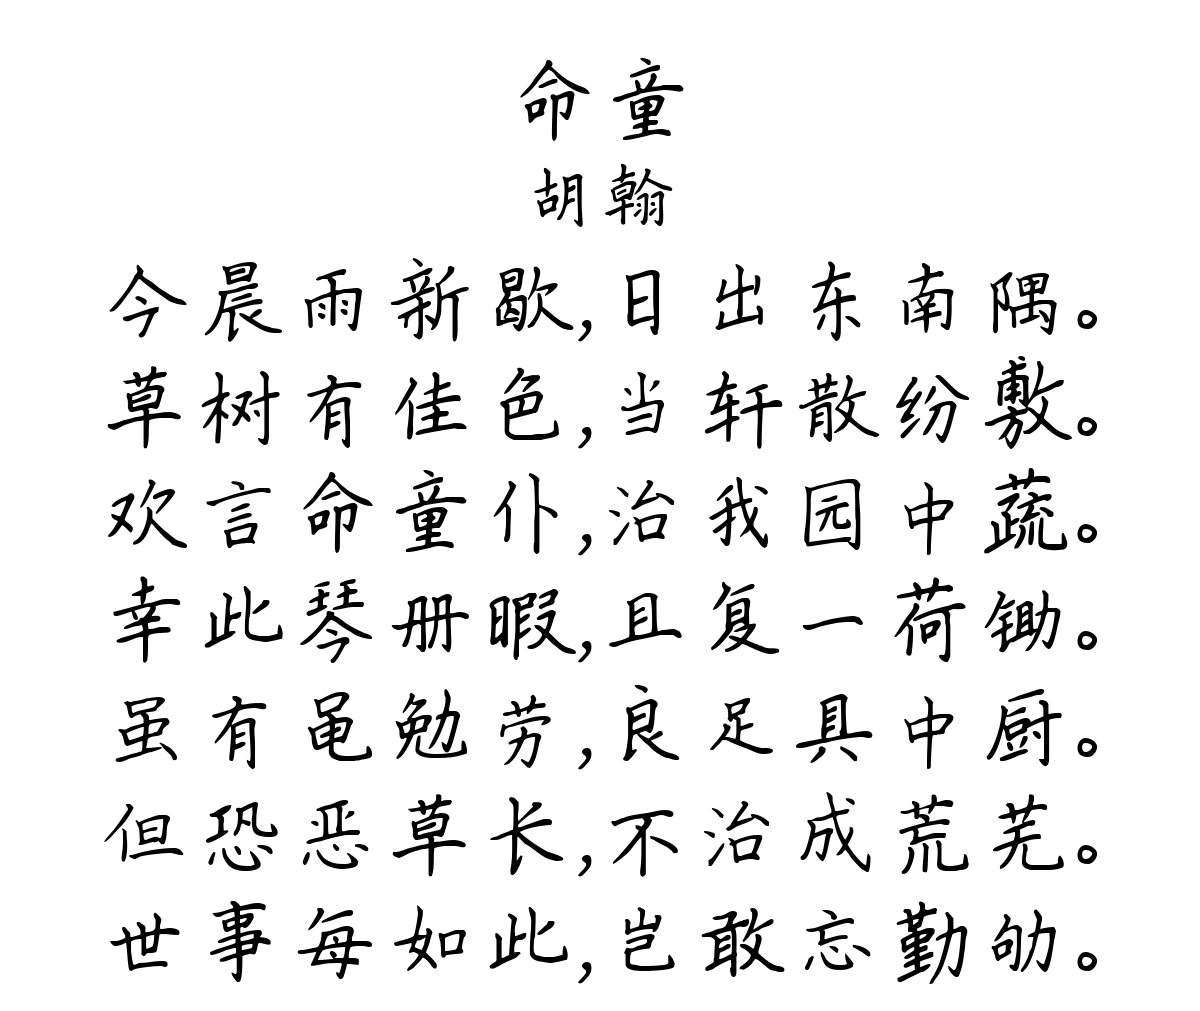 命童
胡翰
今晨雨新歇,日出东南隅。
草树有佳色,当轩散纷敷。
欢言命童仆,治我园中蔬。
幸此琴册暇,且复一荷锄。
虽有黾勉劳,良足具中厨。
但恐恶草长,不治成荒芜。
世事每如此,岂敢忘勤劬。